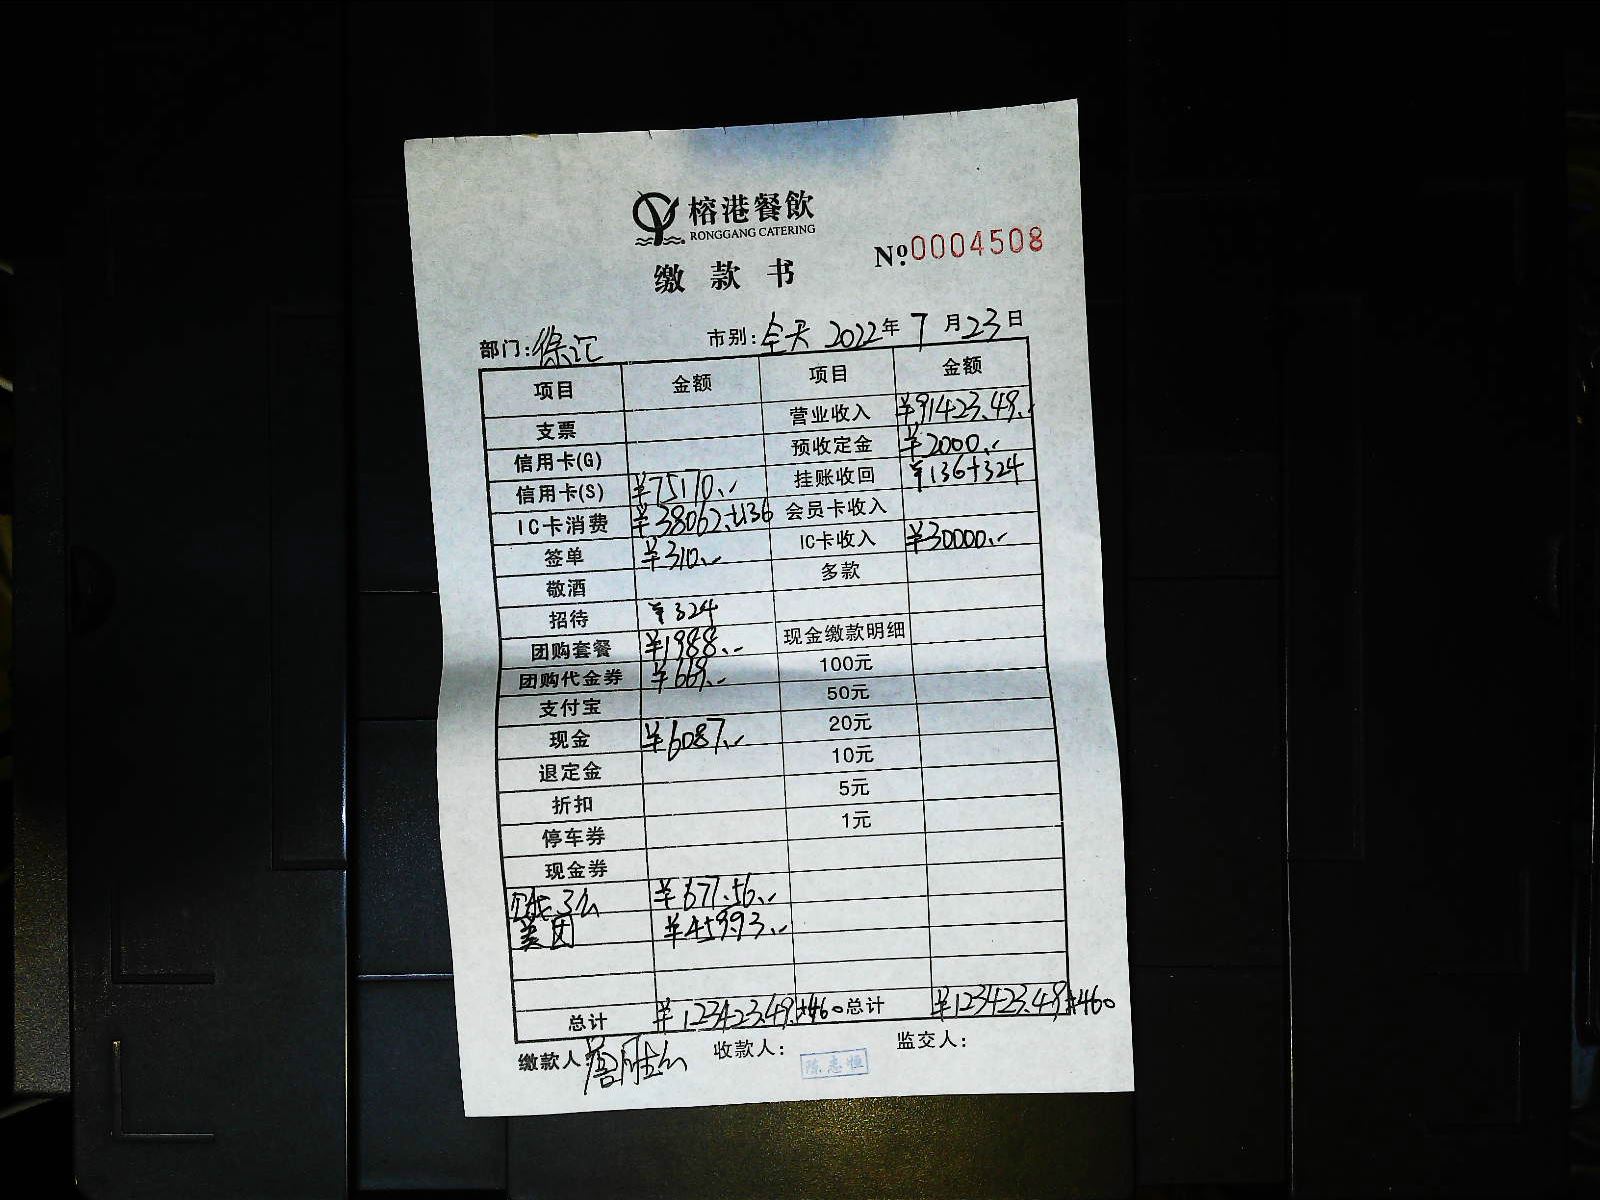 榕港餐飲
RONGGANG CATERING
缴款书
Nº:0004508
部门:徐汇 市别:全天 2022年7月23日
项目 金额 项目 金额
支票 营业收入 ¥91423.49
信用卡(G) 预收定金 ¥2000.-
信用卡(S) ¥75170.- 挂账收回 ¥136+324
IC卡消费 ¥38062.+136 会员卡收入
签单 ¥310.- IC卡收入 ¥30000.-
敬酒 多款
招待 ¥324
团购套餐 ¥1988.- 现金缴款明细
团购代金券 ¥669.- 100元
支付宝 50元
现金 ¥6087.- 20元
退定金 10元
折扣 5元
停车券 1元
现金券
¥677.56
美团 ¥459.93
总计 ¥123423.49+460 总计 ¥123423.49+460
缴款人 收款人: 陈志恒 监交人: